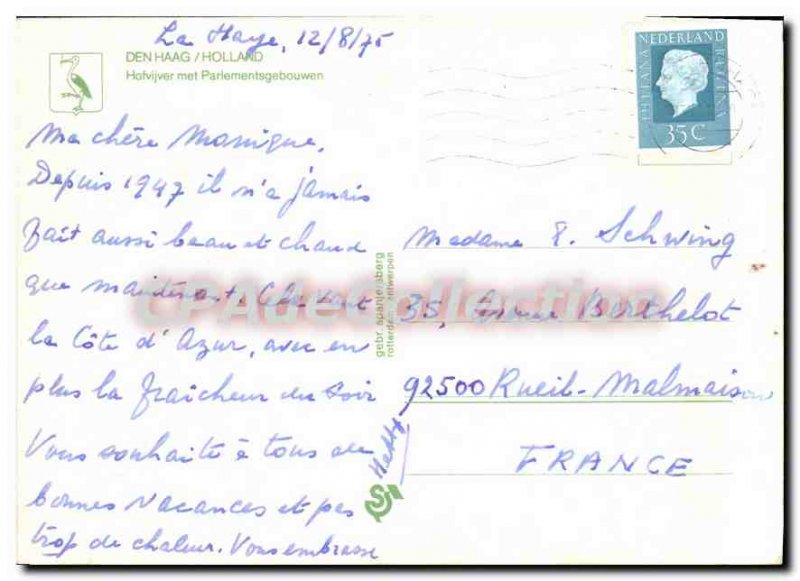 La Haye, 12/8/75
DEN HAAG / HOLLAND
Hofvijver met Parlementsgebouwen
NEDERLAND
JULIANA REGINA
35 C
Ma chère Monique,
Depuis 1947 il n'a jamais
fait aussi beau et chaud
que maintenant.
la Côte d'Azur, avec en
plus la fraîcheur du soir
Vous souhaite à tous de
bonnes vacances et pas
trop de chaleur. Vous embrasse
Hetty
gebr. spanjersberg
rotterdam antwerpen
Madame E. Schwing
35, Berthelot
92500 Rueil-Malmaison
FRANCE
CPArtCollection